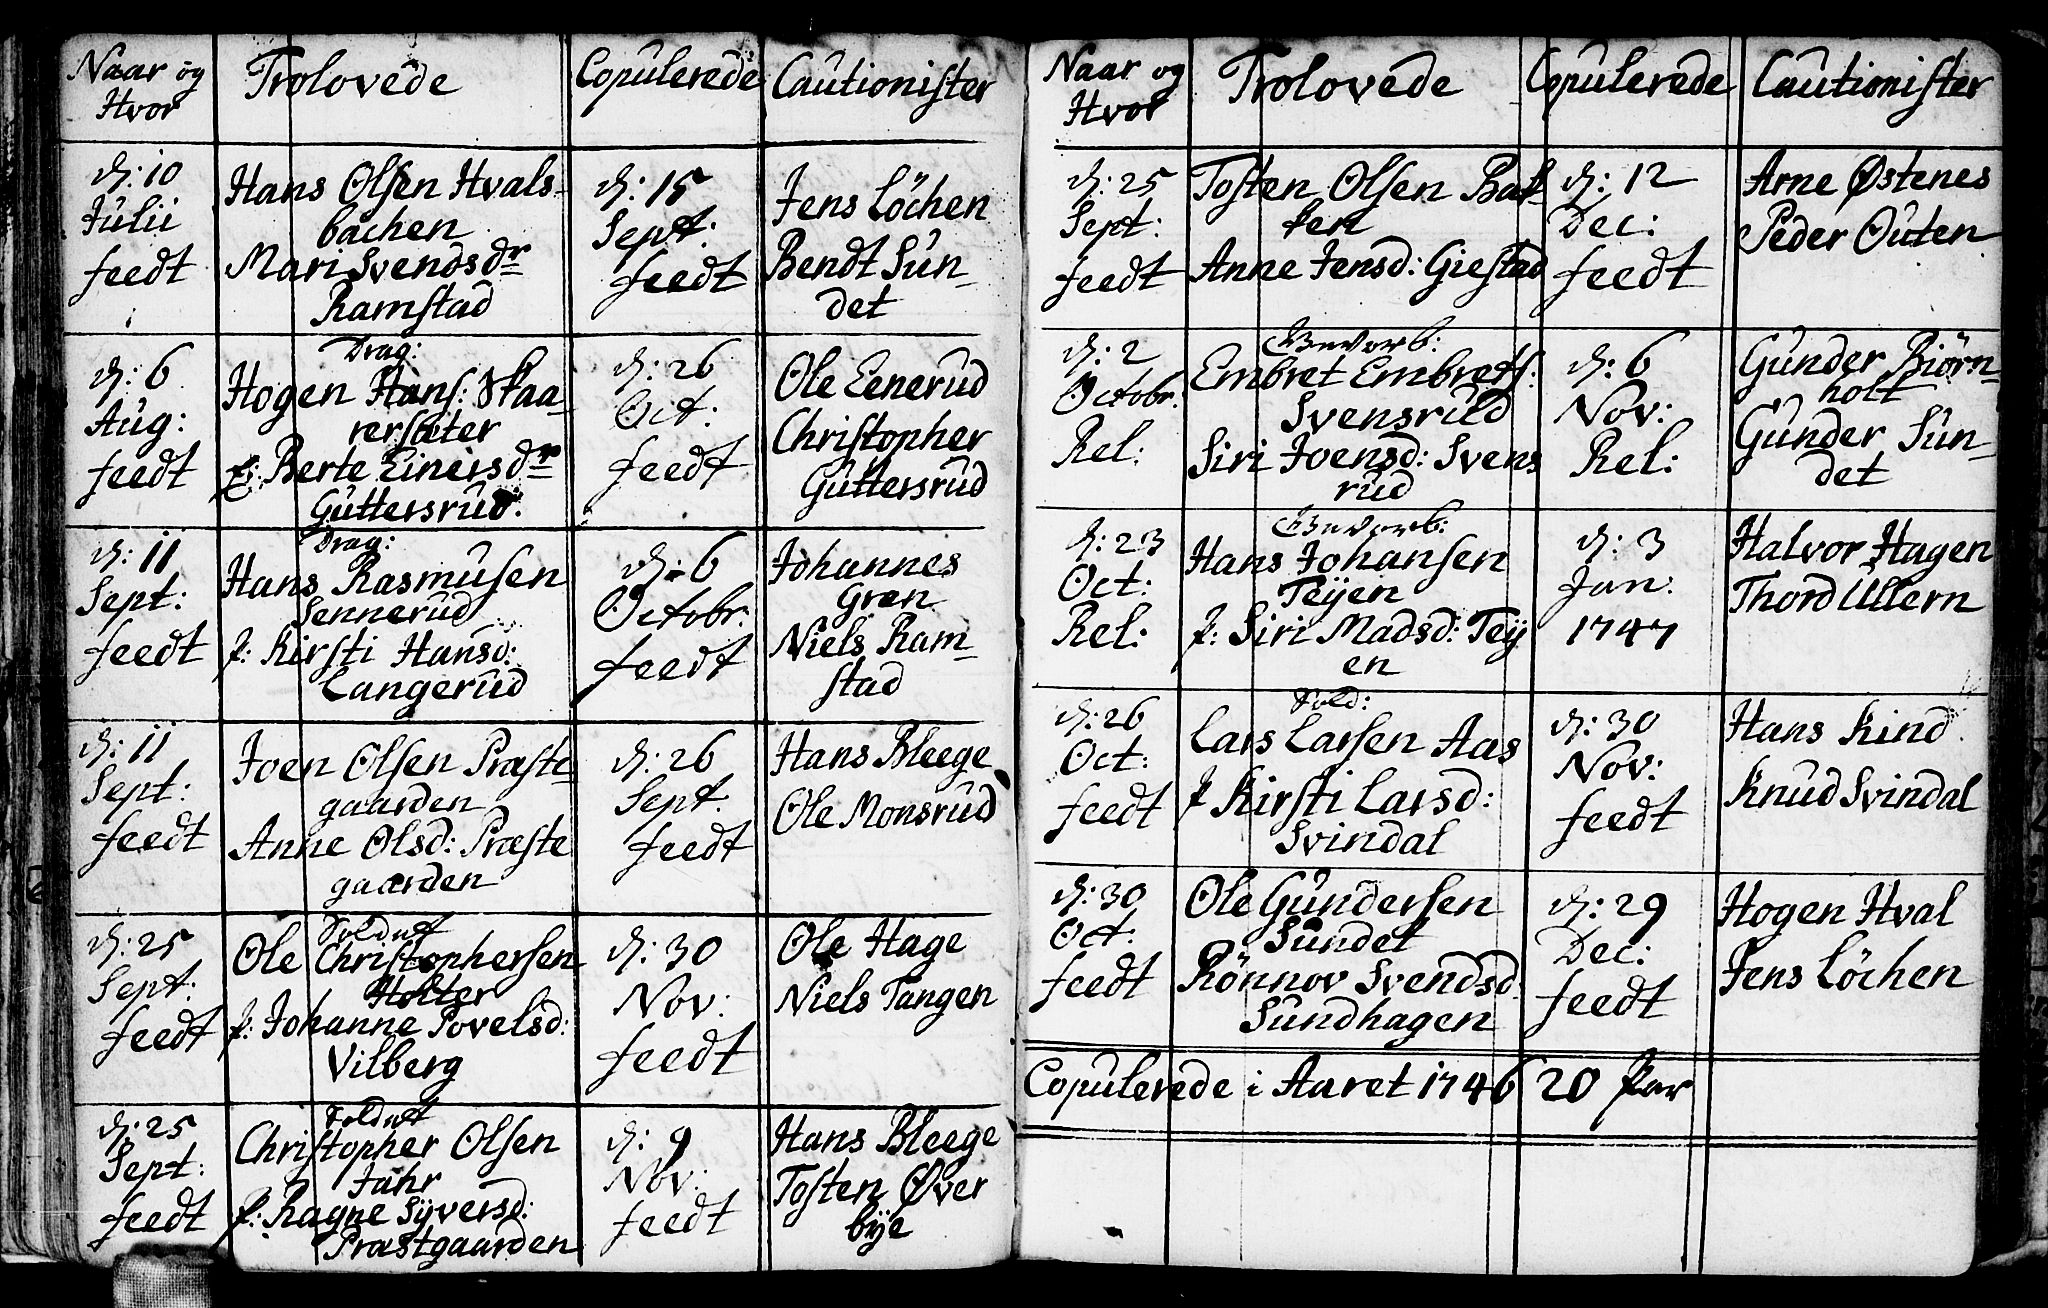 Naar og
Hvor
Trolovede
Copulerede
Cautionister
d: 10
Julii
feedt
Hans Olsen Hvals-
bachen
Mari Svendsdr
Ramstad
d: 15
Sept:
feedt
Jens Löchen
Bendt Sun-
det
d: 6
Aug:
feedt
Drag:
Hogen Hans: Skaa-
rersæter
E: Berte Einersdr
Guttersrud.
d: 26
Oct:
feedt
Ole Eenerud
Christopher
Guttersrud
d: 11
Sept:
feedt
Drag:
Hans Rasmusen
Sennerud
P: Kirsti Hansd:
Langerud
d: 6
Octobr.
feedt
Johannes
Gren
Niels Ram-
stad
d: 11
Sept:
feedt
Joen Olsen Præste
gaarden
Anne Olsd: Præste
gaarden
d: 26
Sept.
feedt
Hans Bleege
Ole Monsrud
d: 25
Sept:
feedt
Soldat
Ole Christophersen
Holter
P: Johanne Povelsd:
Vilberg
d: 30
Nov:
feedt
Ole Hage
Niels Tangen
d: 25
Sept:
feedt
Soldat
Christopher Olsen
Jahr
P: Ragne Syversd:
Præstgaarden
d: 9
Nov:
feedt
Hans Bleege
Tosten Øver
bye
Naar og
Hvor
Trolovede
Copulerede
Cautionister
d: 25
Sept:
feedt
Tosten Olsen Bak-
ken
Anne Jensd: Giestad
d: 12
Dec:
feedt
Arne Østenes
Peder Outen
d: 2
Octobr.
Rel:
Gevorb:
Embret Embrets:
Svensrud
Siri Joensd: Svens
rud
d: 6
Nov:
Rel:
Gunder Biörn-
holt
Gunder Sun-
det
d: 23
Oct:
Rel:
Gevorb:
Hans Johansen
Teyen
P: Siri Madsd: Tey
en
d: 3
Jan:
1747
Halvor Hagen
Thord Ullern
d: 26
Oct:
feedt
Sold:
Lars Larsen Aas
P Kirsti Larsd:
Svindal
d: 30
Nov:
feedt
Hans Kind
Knud Svindal
d: 30
Oct:
feedt
Ole Gundersen
Sundet
Rönnov Svendsd
Sundhagen
d: 29
Dec:
feedt
Hogen Hval
Jens Löchen
Copulerede i Aaret 1746 20 Par